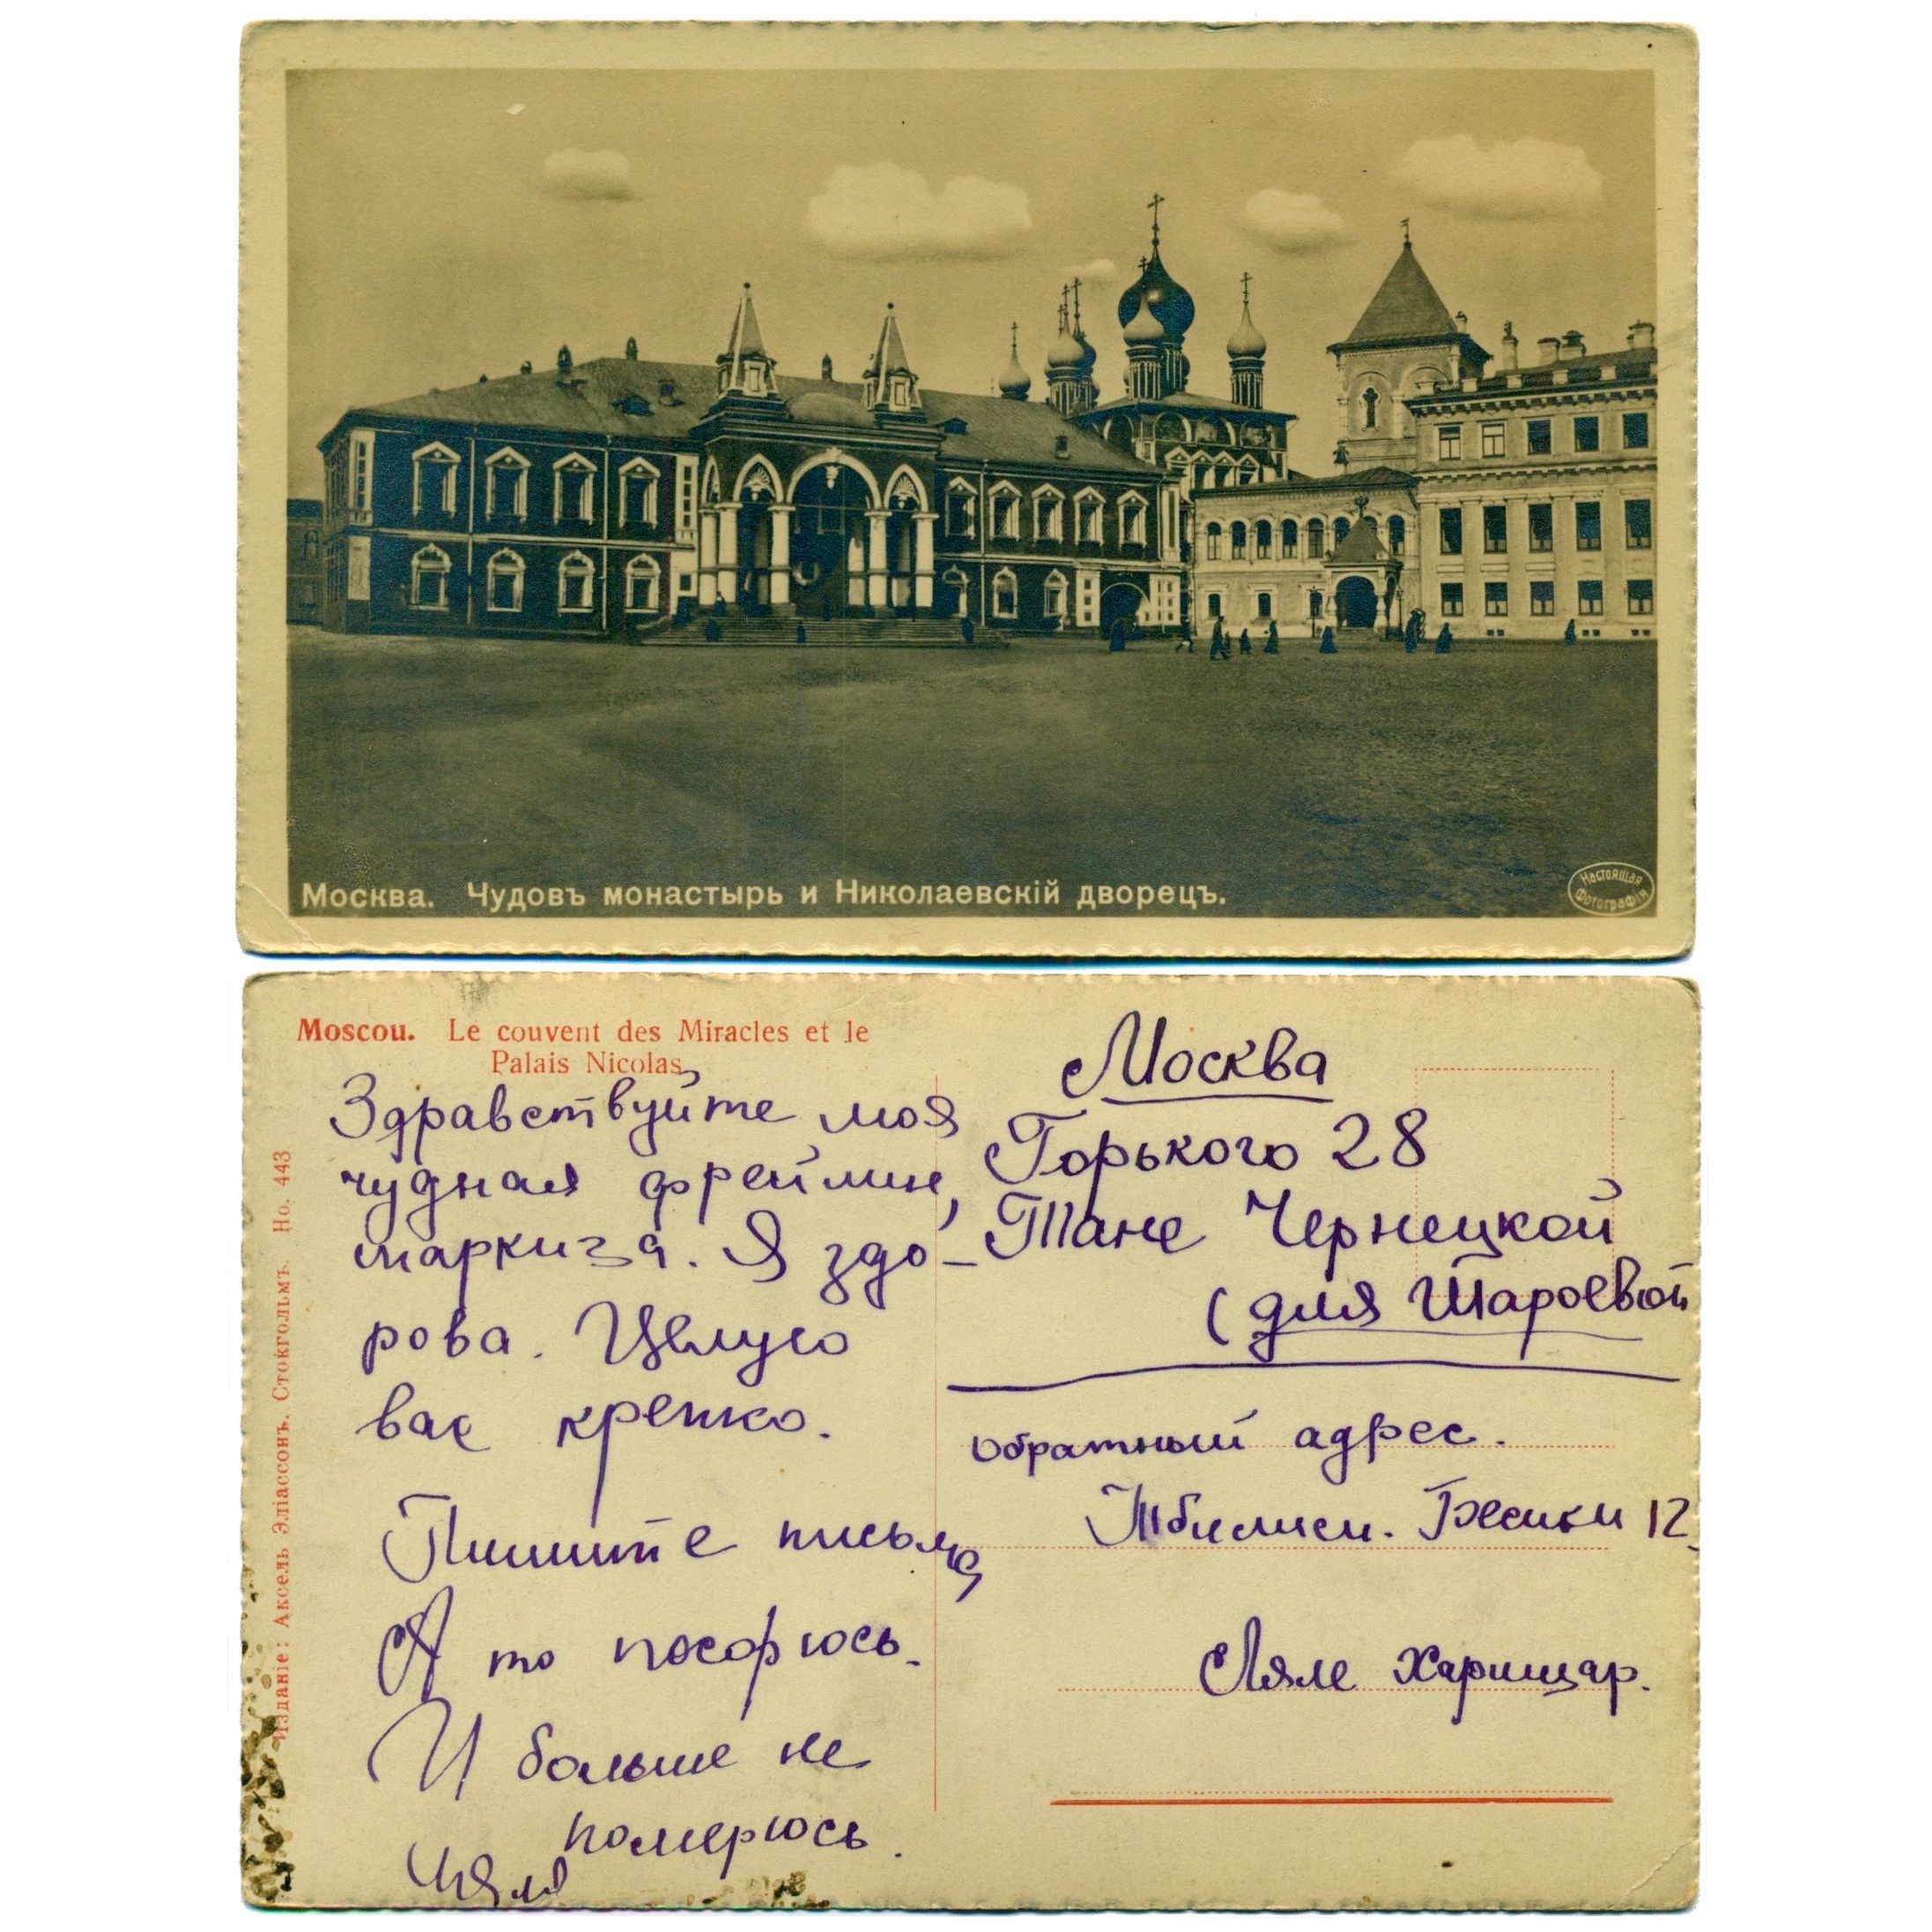 Москва. Чудовъ монастырь и Николаевскій дворецъ.
Настоящая
Фотографія
Moscou. Le couvent des Miracles et le
Palais Nicolas.
Изданіе: Аксель Эліассонъ. Стокгольмъ. Но. 443
Здравствуйте моя
чудная фреилин,
маркиза. Я здо-
рова. Целую
вас крепко.
Пишите письма
А то посорюсь.
И больше не
померюсь.
Москва
Горького 28
Тане Чернецкой
(для Шароевой
обратный адрес.
Тбилиси. Бесики 12.
Ляле